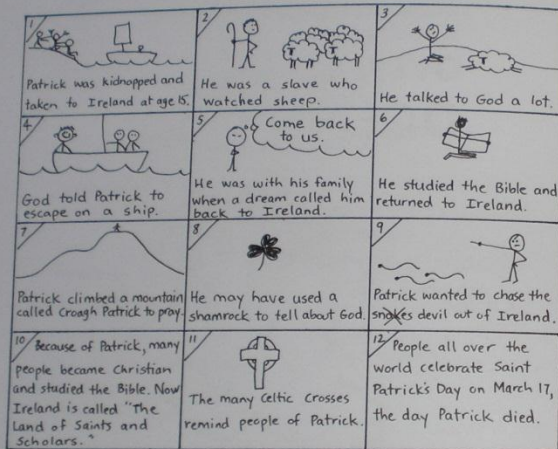 1
Patrick was kidnapped and
taken to Ireland at age 15.
2
He was a slave who
watched sheep.
3
He talked to God a lot.
4
God told Patrick to
escape on a ship.
5
Come back
to us.
He was with his family
when a dream called him
back to Ireland.
6
He studied the Bible and
returned to Ireland.
7
Patrick climbed a mountain
called Croagh Patrick to pray.
8
He may have used a
shamrock to tell about God.
9
Patrick wanted to chase the
snakes devil out of Ireland.
10 Because of Patrick, many
people became Christian
and studied the Bible. Now
Ireland is called "The
Land of Saints and
Scholars."
11
The many Celtic Crosses
remind people of Patrick.
12 People all over the
world celebrate Saint
Patrick's Day on March 17,
the day Patrick died.